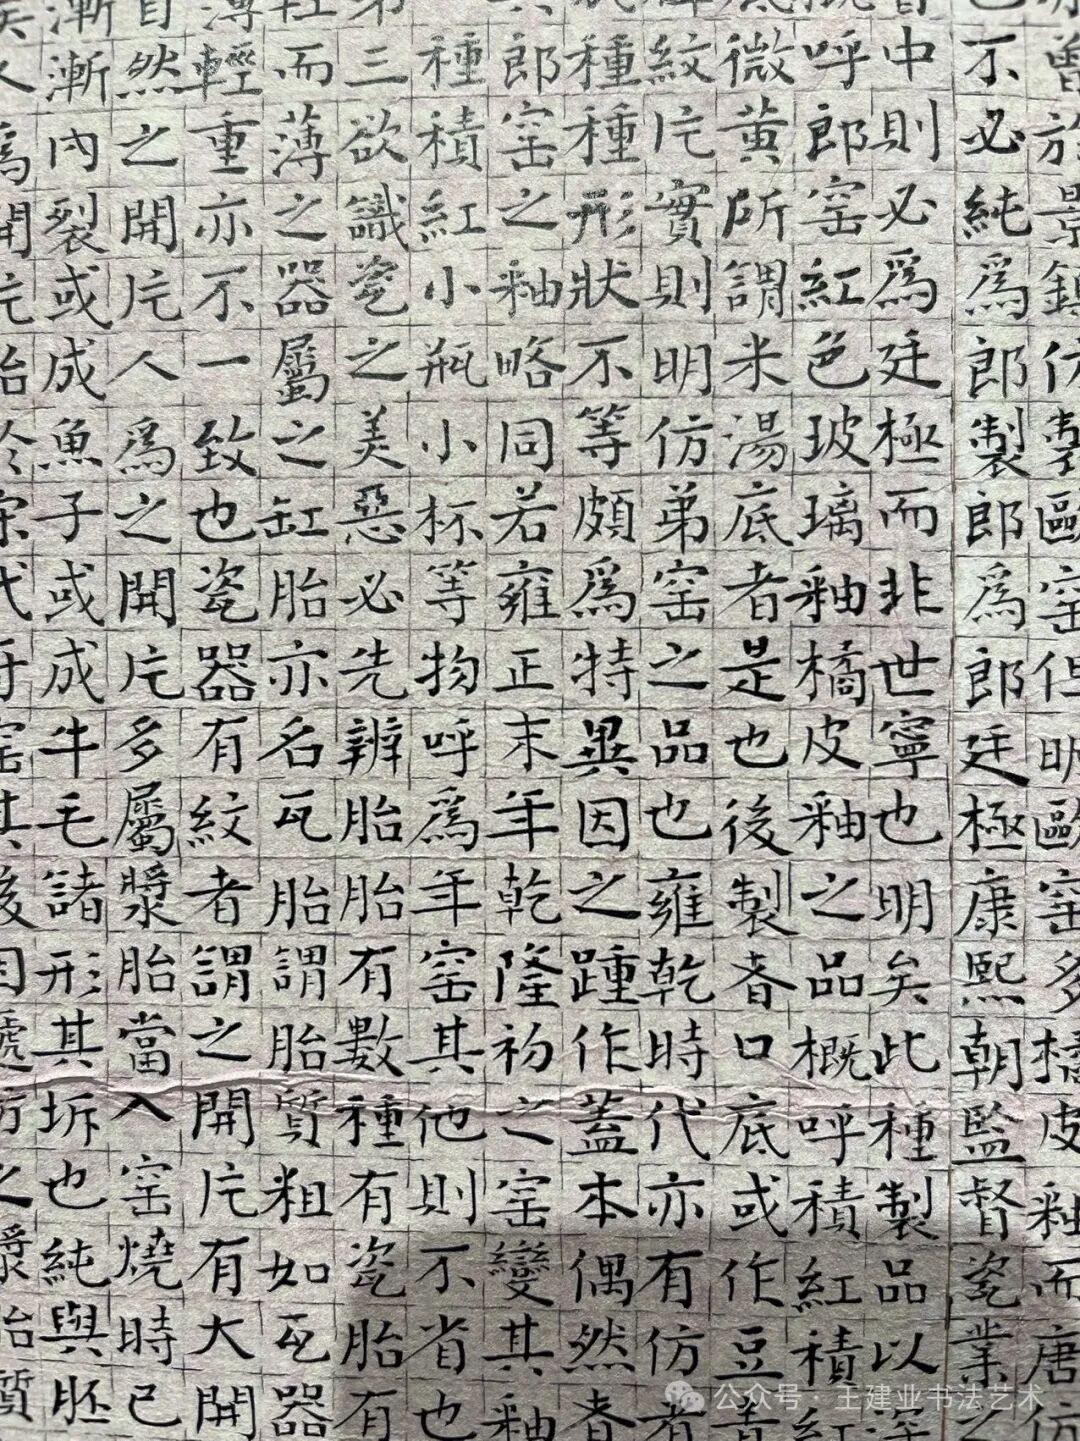 曾於景鎮仿製歐窑但明歐窑多橘皮釉而唐仿
不必純為郎製郎為郎廷極康熙朝監督瓷業之
中則必為廷極而非世寧也明矣此種製品以深
呼郎窑紅色玻璃釉橘皮釉之品概呼積紅積紅
微黃所謂米湯底者是也後製者口底或作豆青
紋片實則明仿弟窑之品也雍乾時代亦有仿者
種種形狀不等頗為特異因之踵作蓋本偶然者
郎窑之釉略同若雍正末年乾隆初之窑變其釉
種積紅小瓶小杯等物呼為年窑其他則不省也
三欲識瓷之美惡必先辨胎胎有數種有瓷胎有
而薄之器屬之缸胎亦名瓦胎謂胎質粗如瓦器
輕重亦不一致也瓷器有紋者謂之開片有大開
然之開片人為之開片多屬漿胎當入窑燒時已
漸內裂或成魚子或成牛毛諸形其坼也純與胚
為開片
公众号·王建业书法艺术